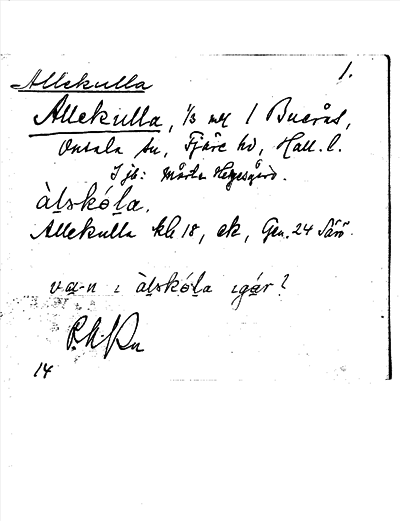 Allekulla
1.
Allekulla, 1/3 mtl 1 Buerås,
Onsala sn, Fjäre hd, Hall. l.
I jb: Mårten Hegesgård.
àl̲skǿl̲a.
Allekulla kb 18, ek, Gen. 24 Särö.
va̲-n ı àl̲skǿl̲a ıgǻr?
14